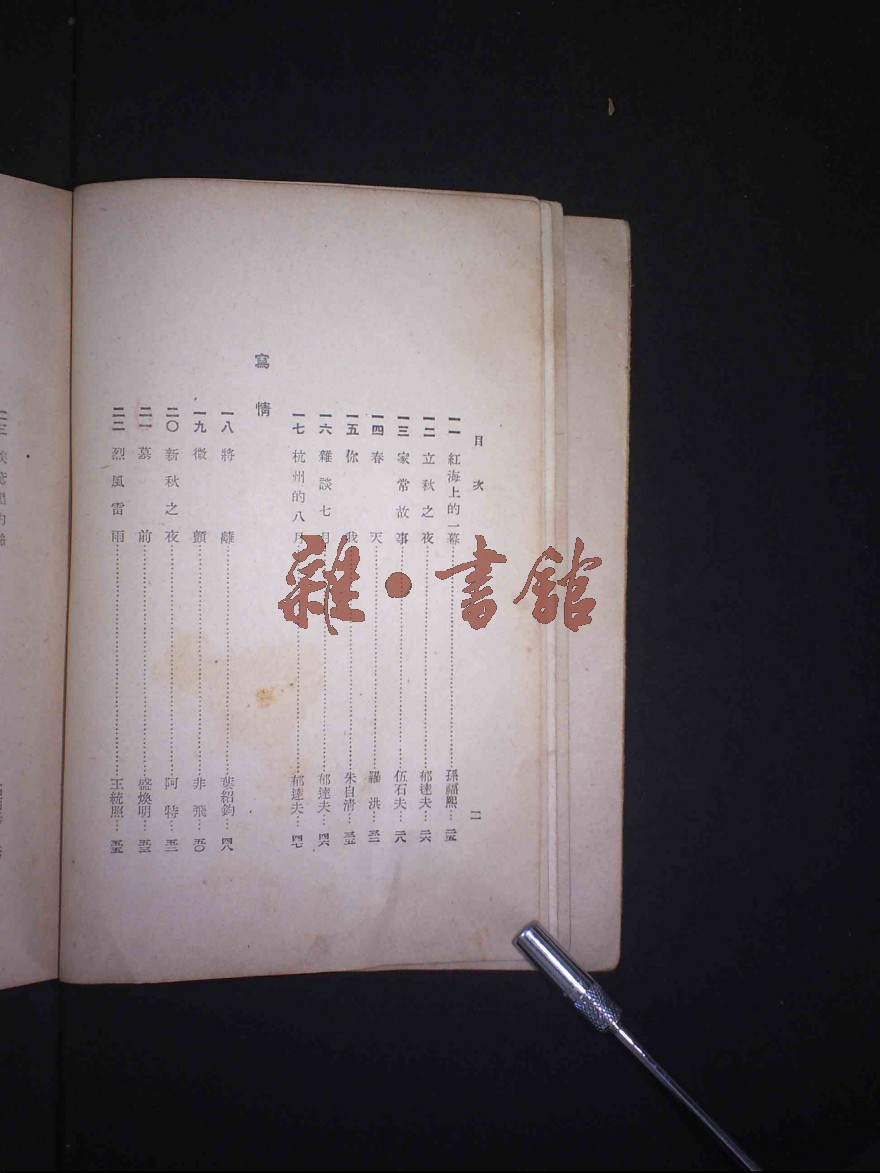 目次
二
一一 紅海上的一幕……孫福熙…二五
一二 立秋之夜……郁達夫…二六
一三 家常故事……伍石夫…二八
一四 春天……羅洪…三二
一五 你我……朱自清…三五
一六 雜談七月……郁達夫…四六
一七 杭州的八月……郁達夫…四七
寫情
一八 將離……葉紹鈞…四八
一九 微顫……非飛…五〇
二〇 新秋之夜……阿特…五二
二一 墓前……盛煥明…五三
二二 烈風雷雨……王統照…五五
雜·書館